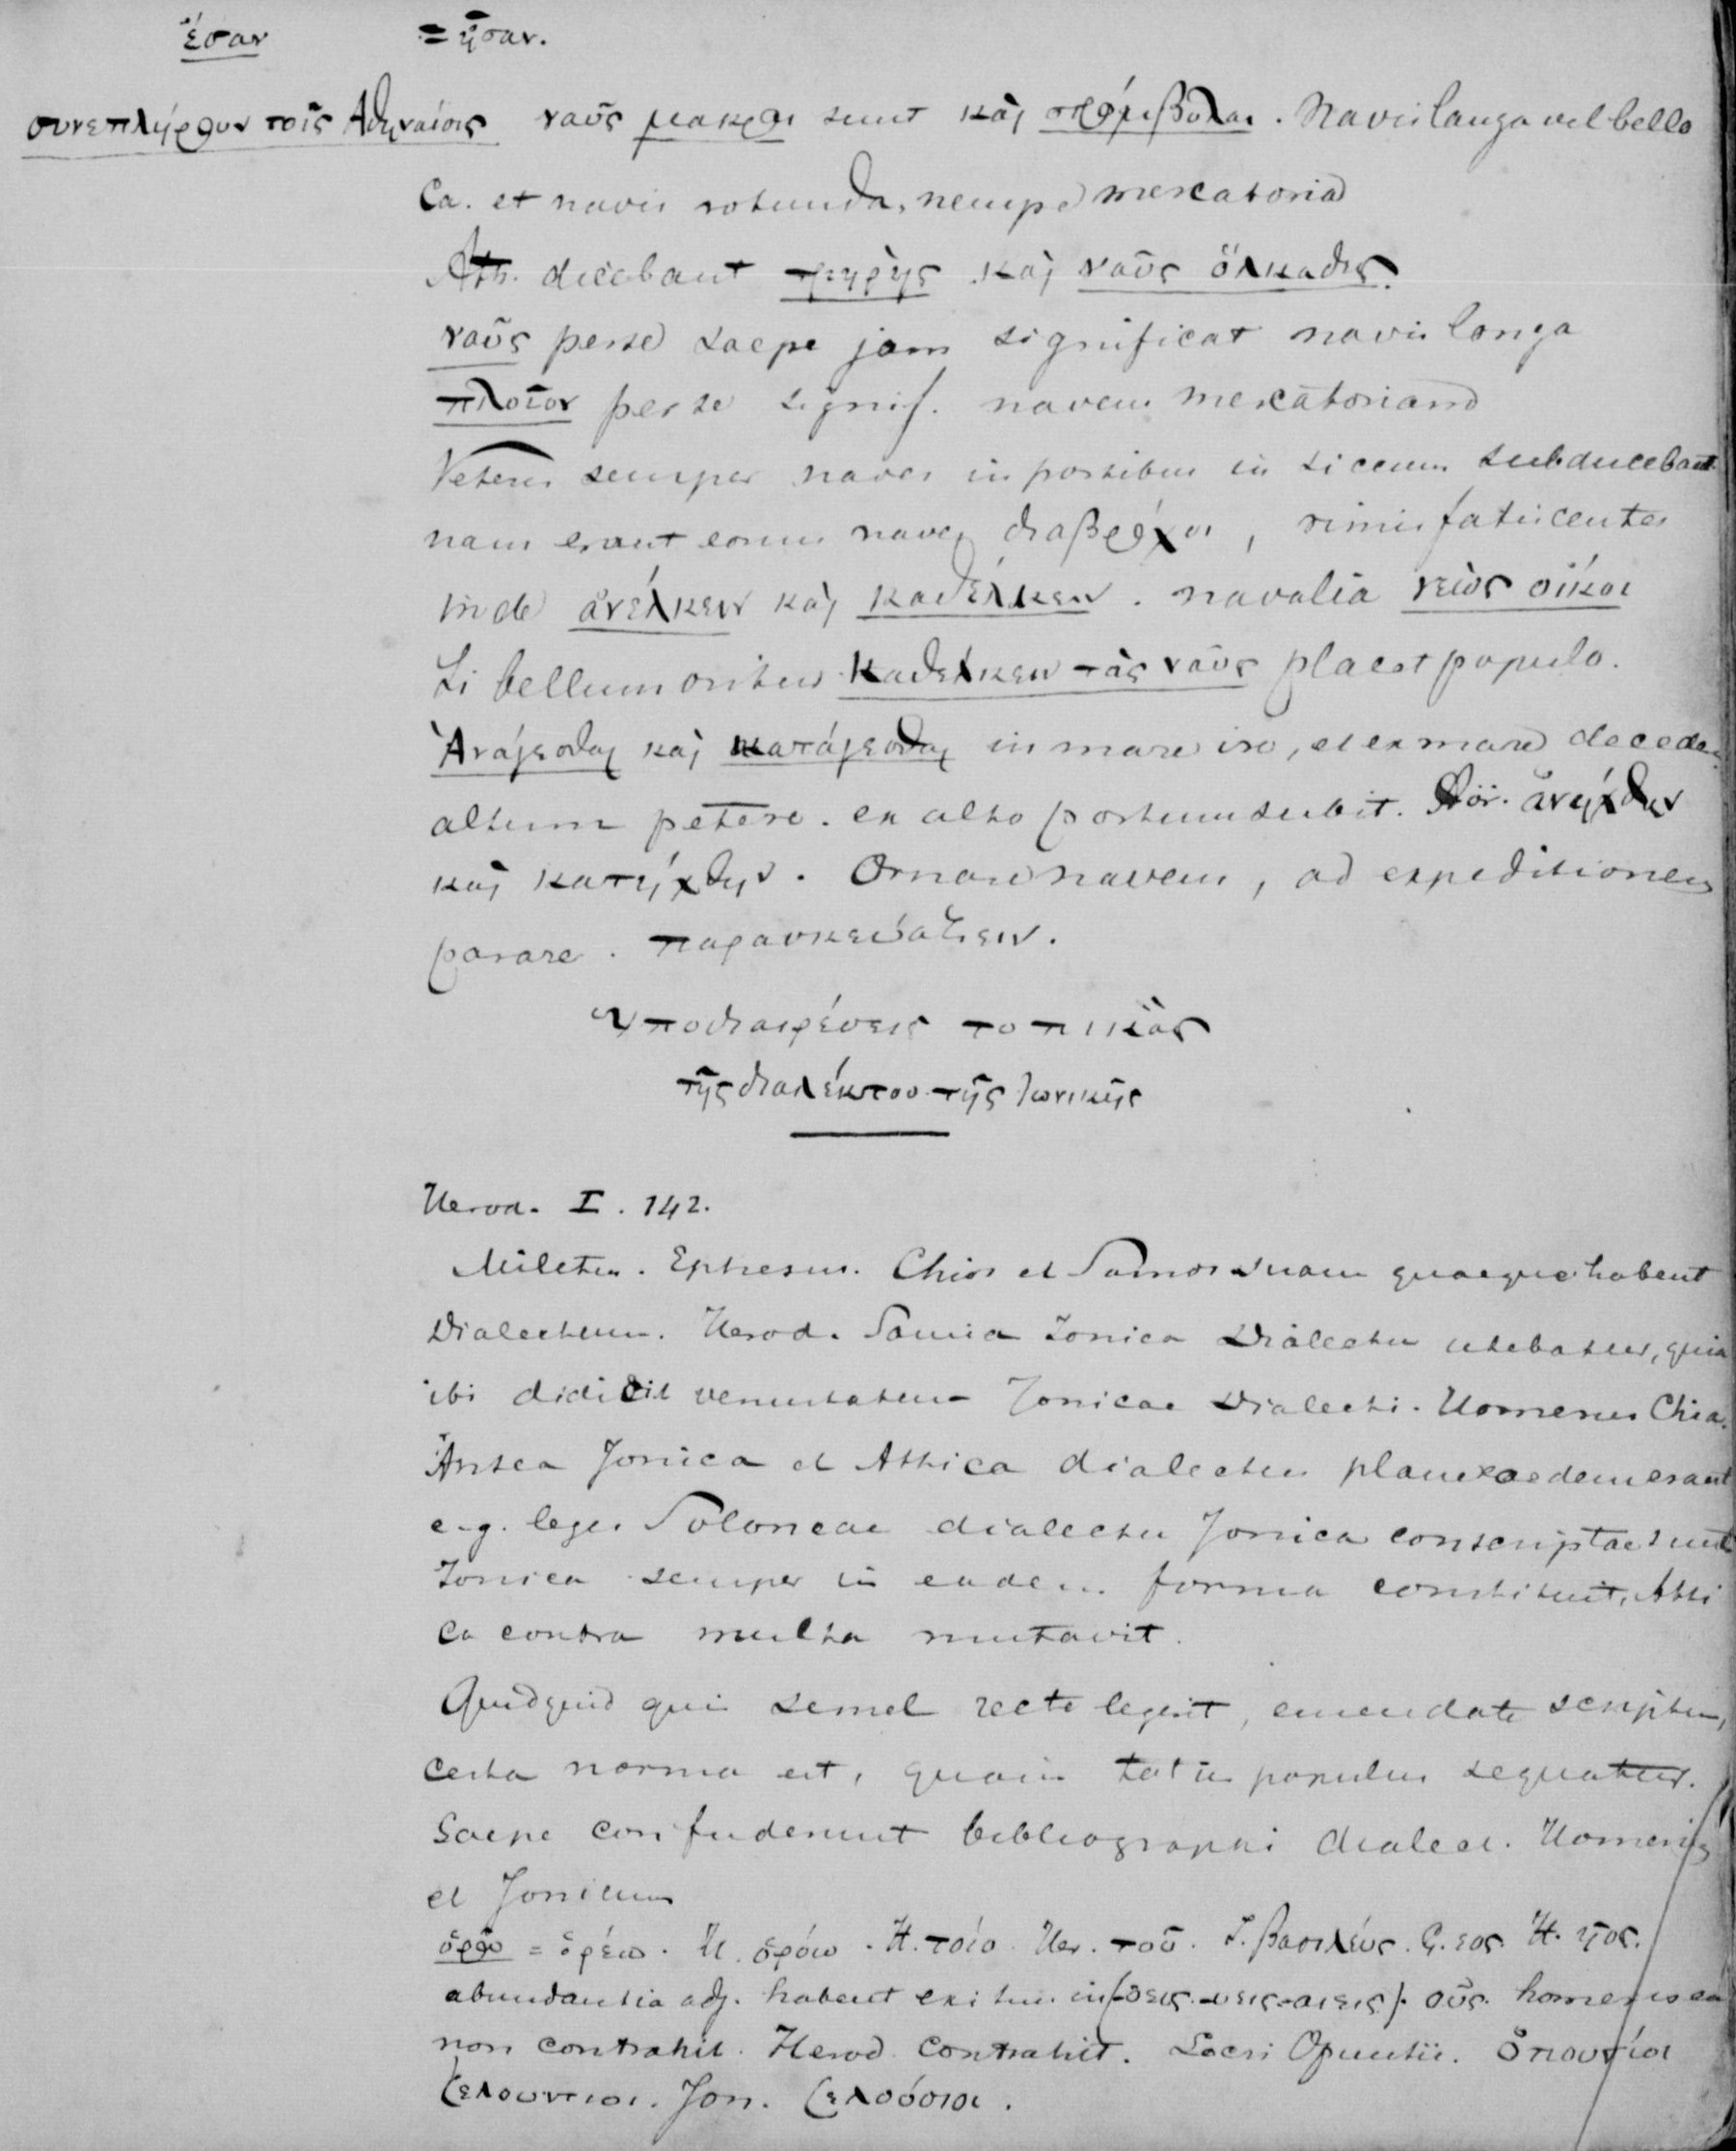 ἔσαν = ἦσαν.
συνεπλήρουν τοῖς Ἀθηναίοις ναῦς μακραι sunt καὶ στρόμβυλαι. Navis longa vel bello
Ca. et navis rotunda, nempe mercatoria
Ath. dicebant τριήρης καὶ ναῦς ὅλκαδες.
ναῦς per se saepe jam significat navis longa
πλοῖον per se signif. navem mercatoriam
Veteres semper naves in portibus in siccum subducebant
nam erant eorum naves διαβρόχοι, rimis fatiscentes
inde ἀνέλκειν καὶ καθέλκειν. navalia νεὼς οἴκοι
Si bellum oritur καθέλκειν τὰς ναῦς placet populo.
Ἀνάγεσθαι καὶ κατάγεσθαι in mare ire, et ex mare decede
altum petere. ex alto portum subit. Aor. ἀνήχθην
καὶ κατήχθην. Ornare navem, ad expeditionem
parare. παρασκευάζειν.
ὑποδιαιρέσεις τοπικὰς
τῆς διαλέκτου τῆς Ἰωνικῆς
Herod. I. 142.
Miletus. Ephesus. Chios et Samos suam quaeque habent
Dialectum. Herod. Samia Ionica Dialectu utebatur, quia
ibi didicit venustatem Jonicae Dialecti. Homerus Chia.
Antea Jonica et Attica dialectus plane eaedem erant
e.g. leges Soloneae dialectu Jonica conscriptae sunt
Ionica semper in eadem forma constituit, Atti
ca contra multa mutavit.
Quidquid quis semel recte legerit, emendate scriptum,
certa norma est, quam totus populus sequatur.
Saepe confuderunt bibliographi dialect. Homeric
et Jonicum
ὁρῶ = ὁρέω. H. ὁρόω. H. τοίο. Her. τοῦ. I. βασιλεύς. G. εος. H. ῆος.
abundantia adj. habent exitum in (-οεις -υεις -αιεις). οῦς. homerus ea
non contrahit. Herod. contrahit. Locri Opuntii. Ὀπουντίοι
Σελουντιοι. Jon. Σελοόσιοι.